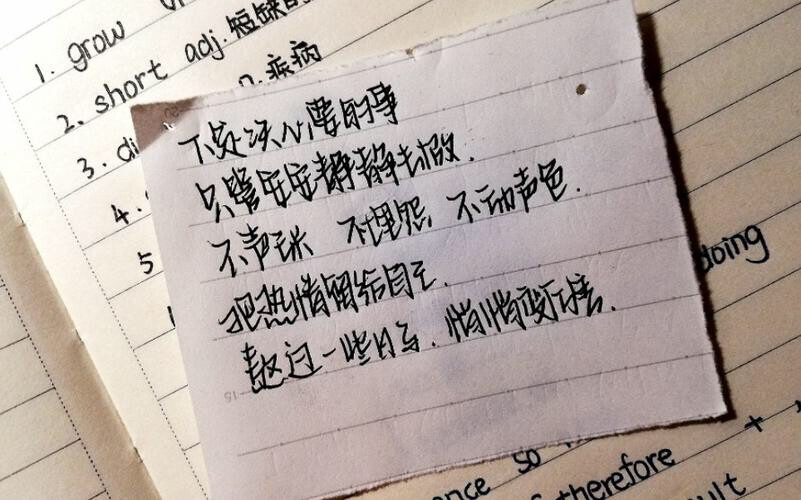 1. grow
2. short adj. 短缺的
3. di n. 疾病
4.
5
下定决心要的事
只管安安静静去做.
不声张 不埋怨, 不动声色.
把热情留给自己.
熬过一些日子. 悄悄变厉害.
doing
ence so
therefore +